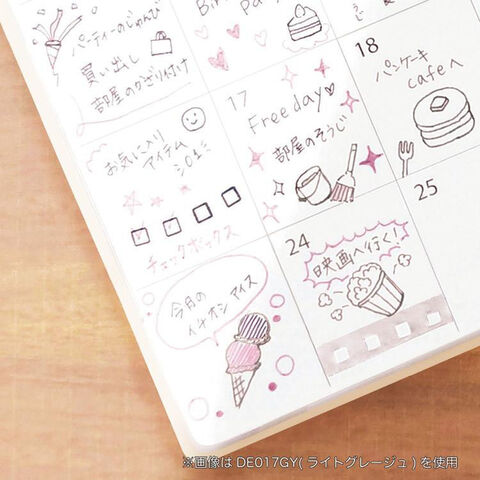 パーティーのじゅんび
買い出し
部屋のかざり付け
17
Free day♡
部屋のそうじ
18
パンケーキ
cafeへ
お気に入り
アイテム
チェックボックス
24
映画へ行く!
25
今月の
イチオシ アイス
※画像は DE017GY( ライトグレージュ ) を使用